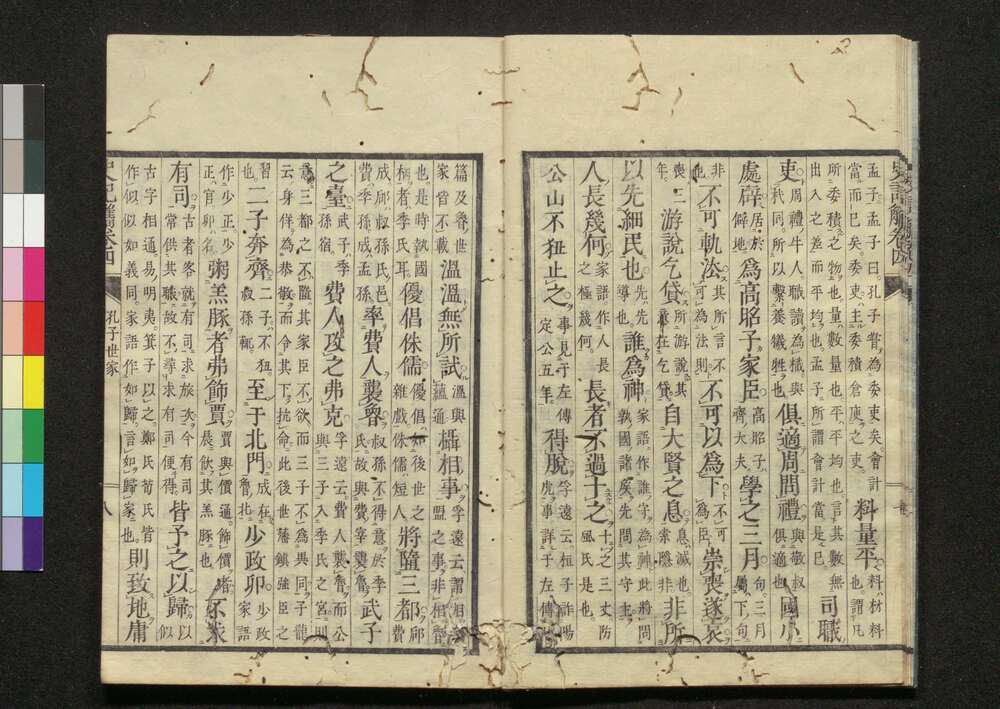 孟子孟子曰孔子嘗為委吏矣會計當而已矣委吏主委積倉庾之吏料量平料材料也謂凡
所委積之之物也量數量也平平均也言其數無出入之差而平均也孟子所謂會計當是已司職
吏周禮牛人職讀為樴與杙同所以繫養犧牲也俱適周問禮與敬叔俱適也國小
處辟居於解地為高昭子家臣高昭子齊大夫學之三月句三月屬下句
非也不可軌法其所言不可為法則不可以為下不可為臣崇喪遂哀
喪二年游說乞貸其所游說意在乞貸自大賢之息息滅也索隱非非所
以先細民也先先導也誰為神家語作誰守為神此將問孰國諸矦先問其守主
人長幾何家語作人長之極幾何長者不過十之十之三丈防風氏是也
公山不狃止之事見于左傳定公五年得脫孚遠云桓子詐陽虎事詳于左傳
史記觿卷四
篇及魯世家皆不載溫溫無所試溫與蘊通攝相事孚遠云謂相會盟之事非相魯
也是時執國柄者季氏耳優倡侏儒優倡如後世之雜戲侏儒短人將墮三都郈費
成郈叔孫氏邑費季孫成孟孫率費人襲魯叔孫不得意於季氏故與費宰襲魯武子
之臺武子季孫宿費人攻之弗克孚遠云費人襲魯而公與三子入季氏之宮則
意三都之不墮其家臣不欲而三子不為異同子龍云身佯為恭敬而令其下抗命此後世藩鎮強臣之
習也二子奔齊二子不狃叔孫輒至于北門成在魯北少政卯少政家語
作少正少正官卯名粥羔豚者弗飾賈賈與價通飾價者晨飲其羔豚也不求
有司古者客就有司求旅次今有司常供其職故不導求有司便得皆予之以歸以似
古字相通易明夷箕子以之鄭氏荀氏皆作似似如義同家語作如歸言如歸家也則致地庸
史記觿卷四 孔子世家 八